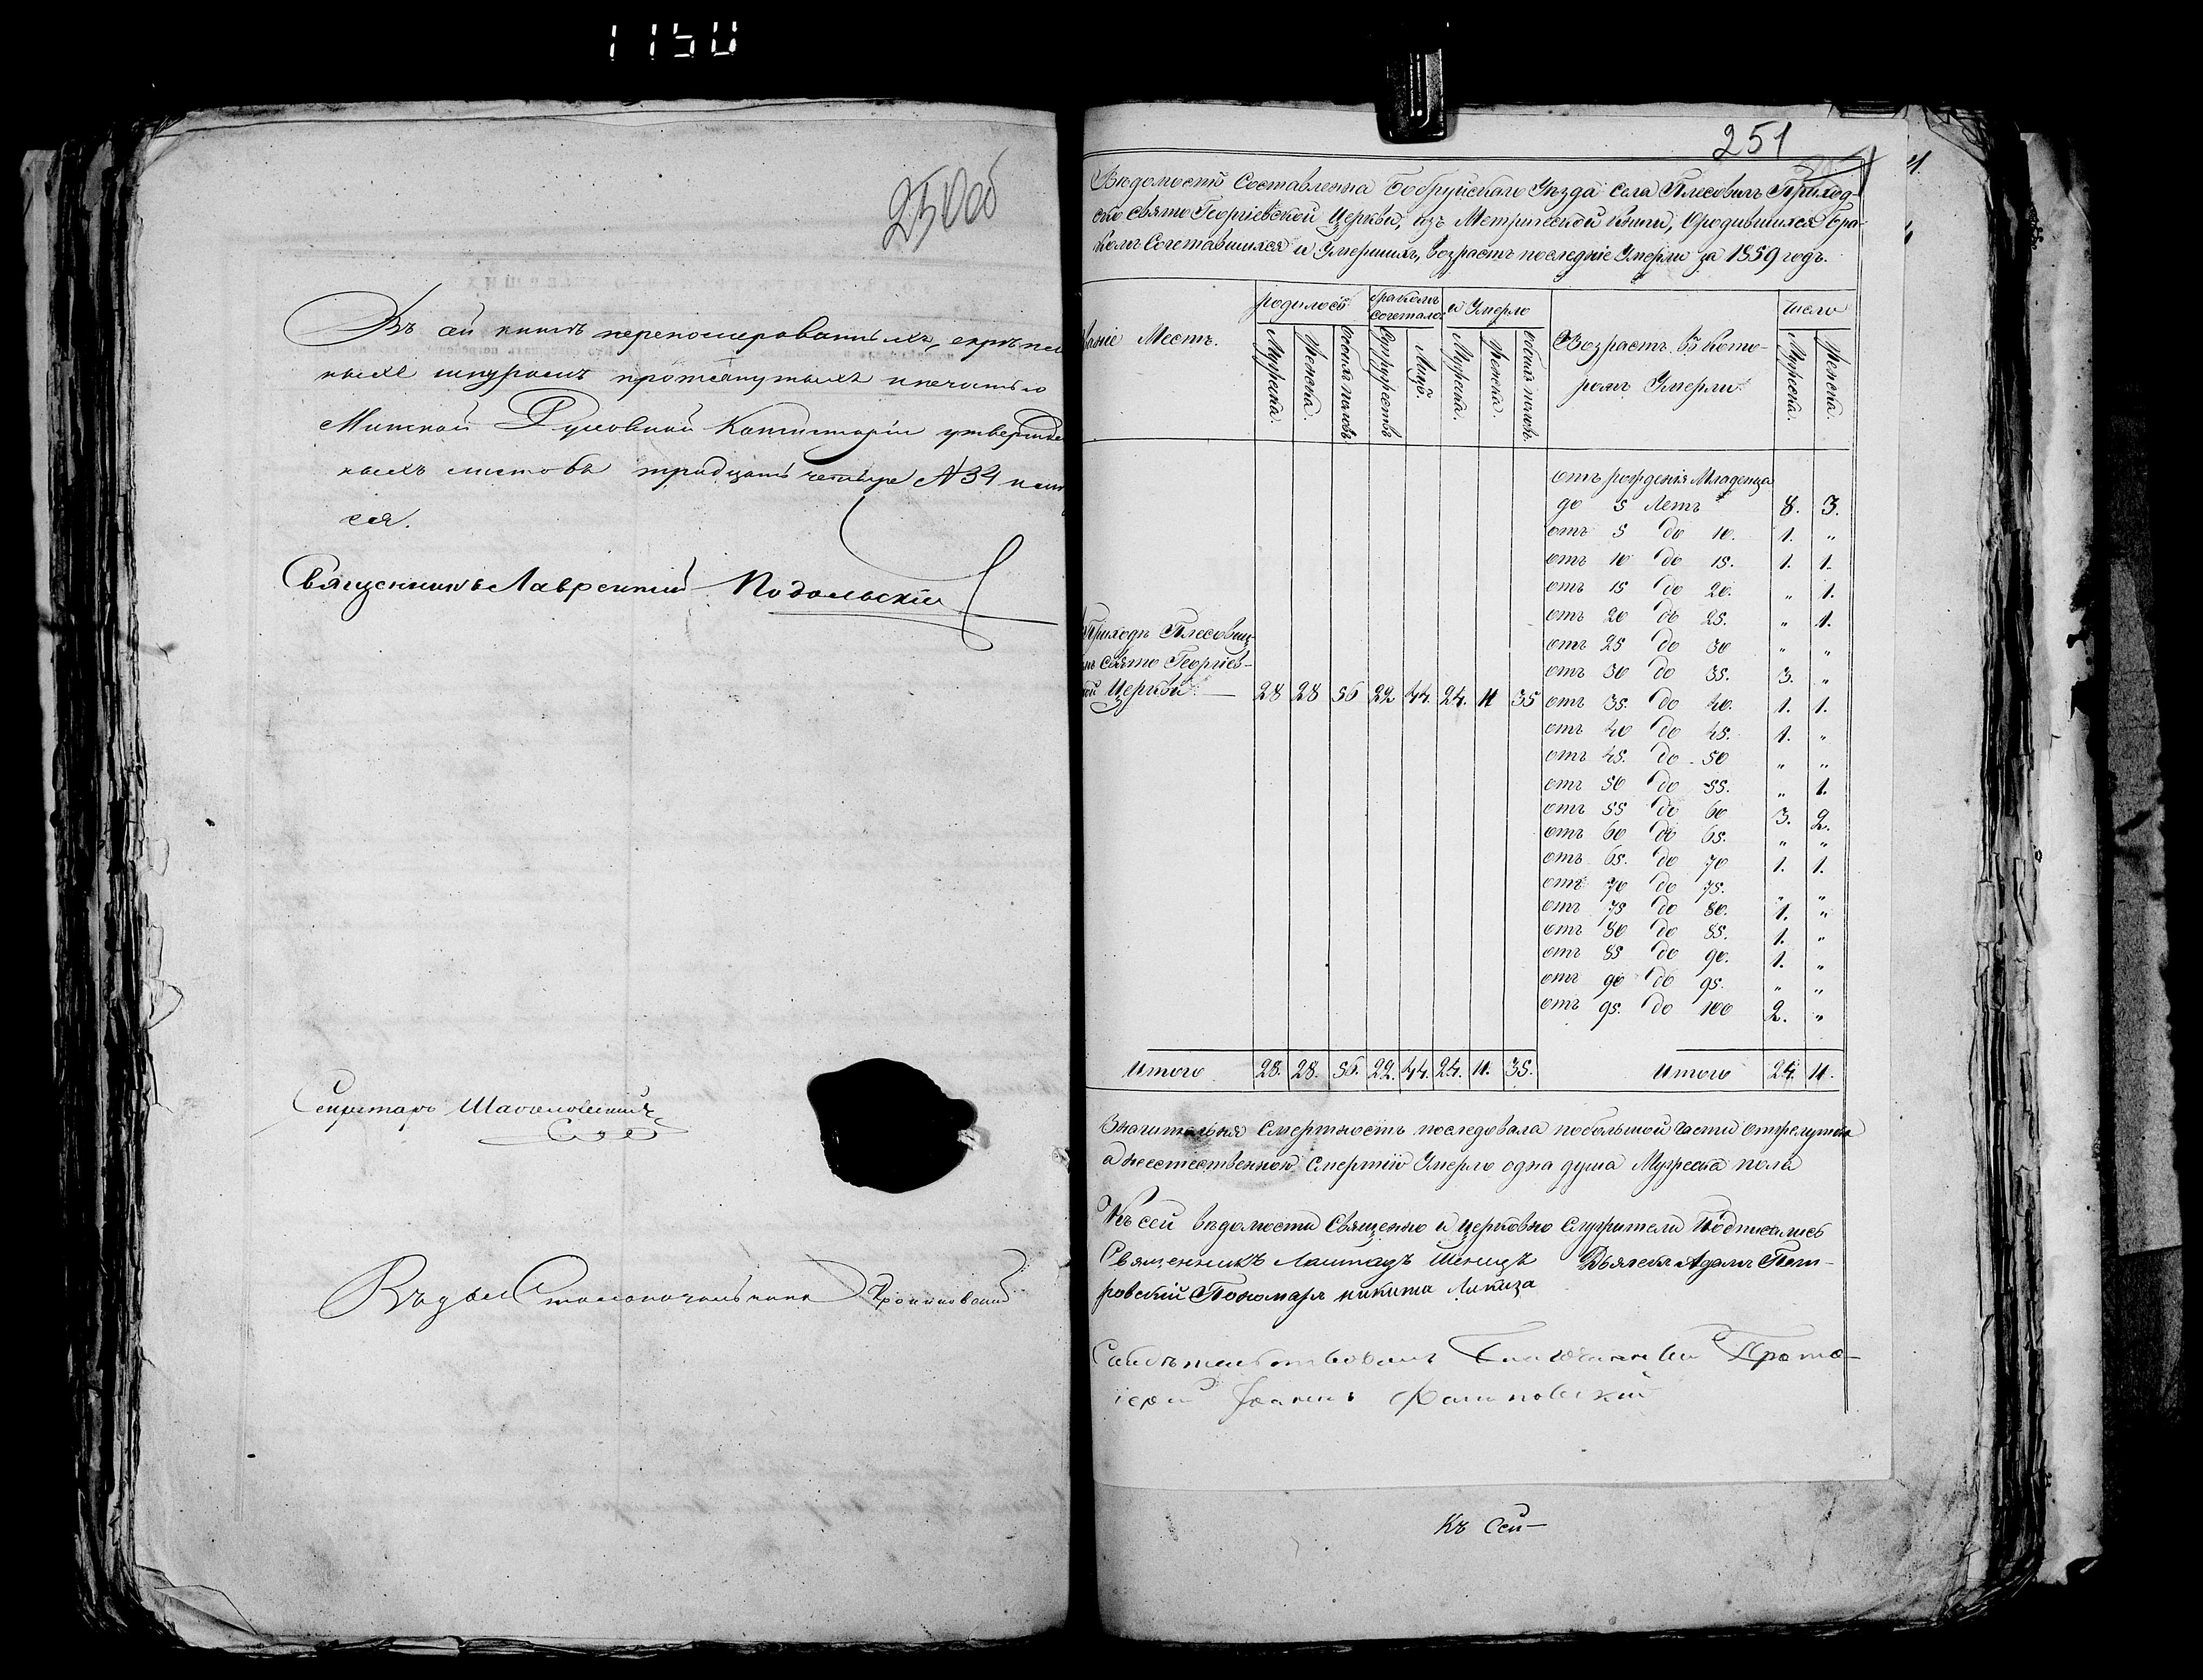 1150
250об
Въ сей книгѣ переномерованныхъ, скрѣплен
ныхъ шнуромъ протянутыхъ и печатью
Минской Духовной Консисторіи утвержден
ныхъ листовъ тридцать четыре №34 имеет
ся.
Священникъ Лаврентий Подольскій
Секретарь
Въ Столоначальника
251
Вѣдомость Составлена Бобруйскаго Уѣзда села Плесовичъ Приход-
ско свято Георгіевской Церкви, изъ Метрической Книги, О родившихся Бра-
комъ Сочетавшихся и Умершихъ, возрастъ последніе Умерли за 1859 годъ.
ваніе Местъ.
родилось
бракомъ сочетало.
и Умерло
Возрастъ, въ кото-
ромъ Умерли
число
Мужеска.
Женска.
Обоихъ половъ
Супружествъ
Лицъ.
Мужеска.
Женска.
Обоихъ половъ.
Мужеска.
Женска.
отъ рожденія Младенца
до 5 Летъ 8. 3.
отъ 5 до 10. 1. „
отъ 10 до 15. 1. 1.
отъ 15 до 20. „ 1.
отъ 20 до 25. „ 1.
отъ 25 до 30 „ „
отъ 30 до 35. 3. „
Приходъ Плесович
свято Георгіев-
ой Церкви — 28 28 56 22 44. 24. 11 35
отъ 35. до 40. 1. 1.
отъ 40 до 45. 1. „
отъ 45. до 50 „ „
отъ 50 до 55. „ 1.
отъ 55 до 60 3. 2.
отъ 60 до 65. „ „
отъ 65. до 70 1. 1.
отъ 70 до 75. „ „
отъ 75 до 80. 1. „
отъ 80 до 85. 1. „
отъ 85 до 90. 1. „
отъ 90 до 95. „ „
отъ 95. до 100 2. „
Итого 28. 28. 56. 22. 44. 24. 11. 35. Итого 24. 11.
Значительная Смертность последовала по большой части от
а неестественною Смертію Умерло одна душа Мужеска пола
Къ сей вѣдомости Священно и церковно Служители Подписались
Священникъ Дьячекъ Адамъ Пет-
ровскій Пономарь никита
Свидѣтельствовалъ Благочинный Прото-
іерей Іоаннъ
Къ Сей—